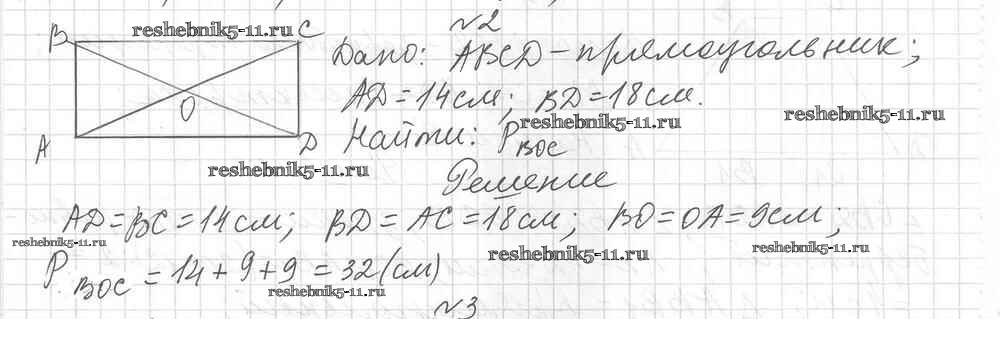 №2
B C
reshebnik5-11.ru
Дано: ABCD - прямоугольник;
AD = 14 см; BD = 18 см.
reshebnik5-11.ru
reshebnik5-11.ru
O
A D
Найти: P BOC
reshebnik5-11.ru
Решение
AD = BC = 14 см; BD = AC = 18 см; BO = OA = 9 см;
reshebnik5-11.ru
reshebnik5-11.ru
reshebnik5-11.ru
P BOC = 14 + 9 + 9 = 32 (см)
reshebnik5-11.ru
№3